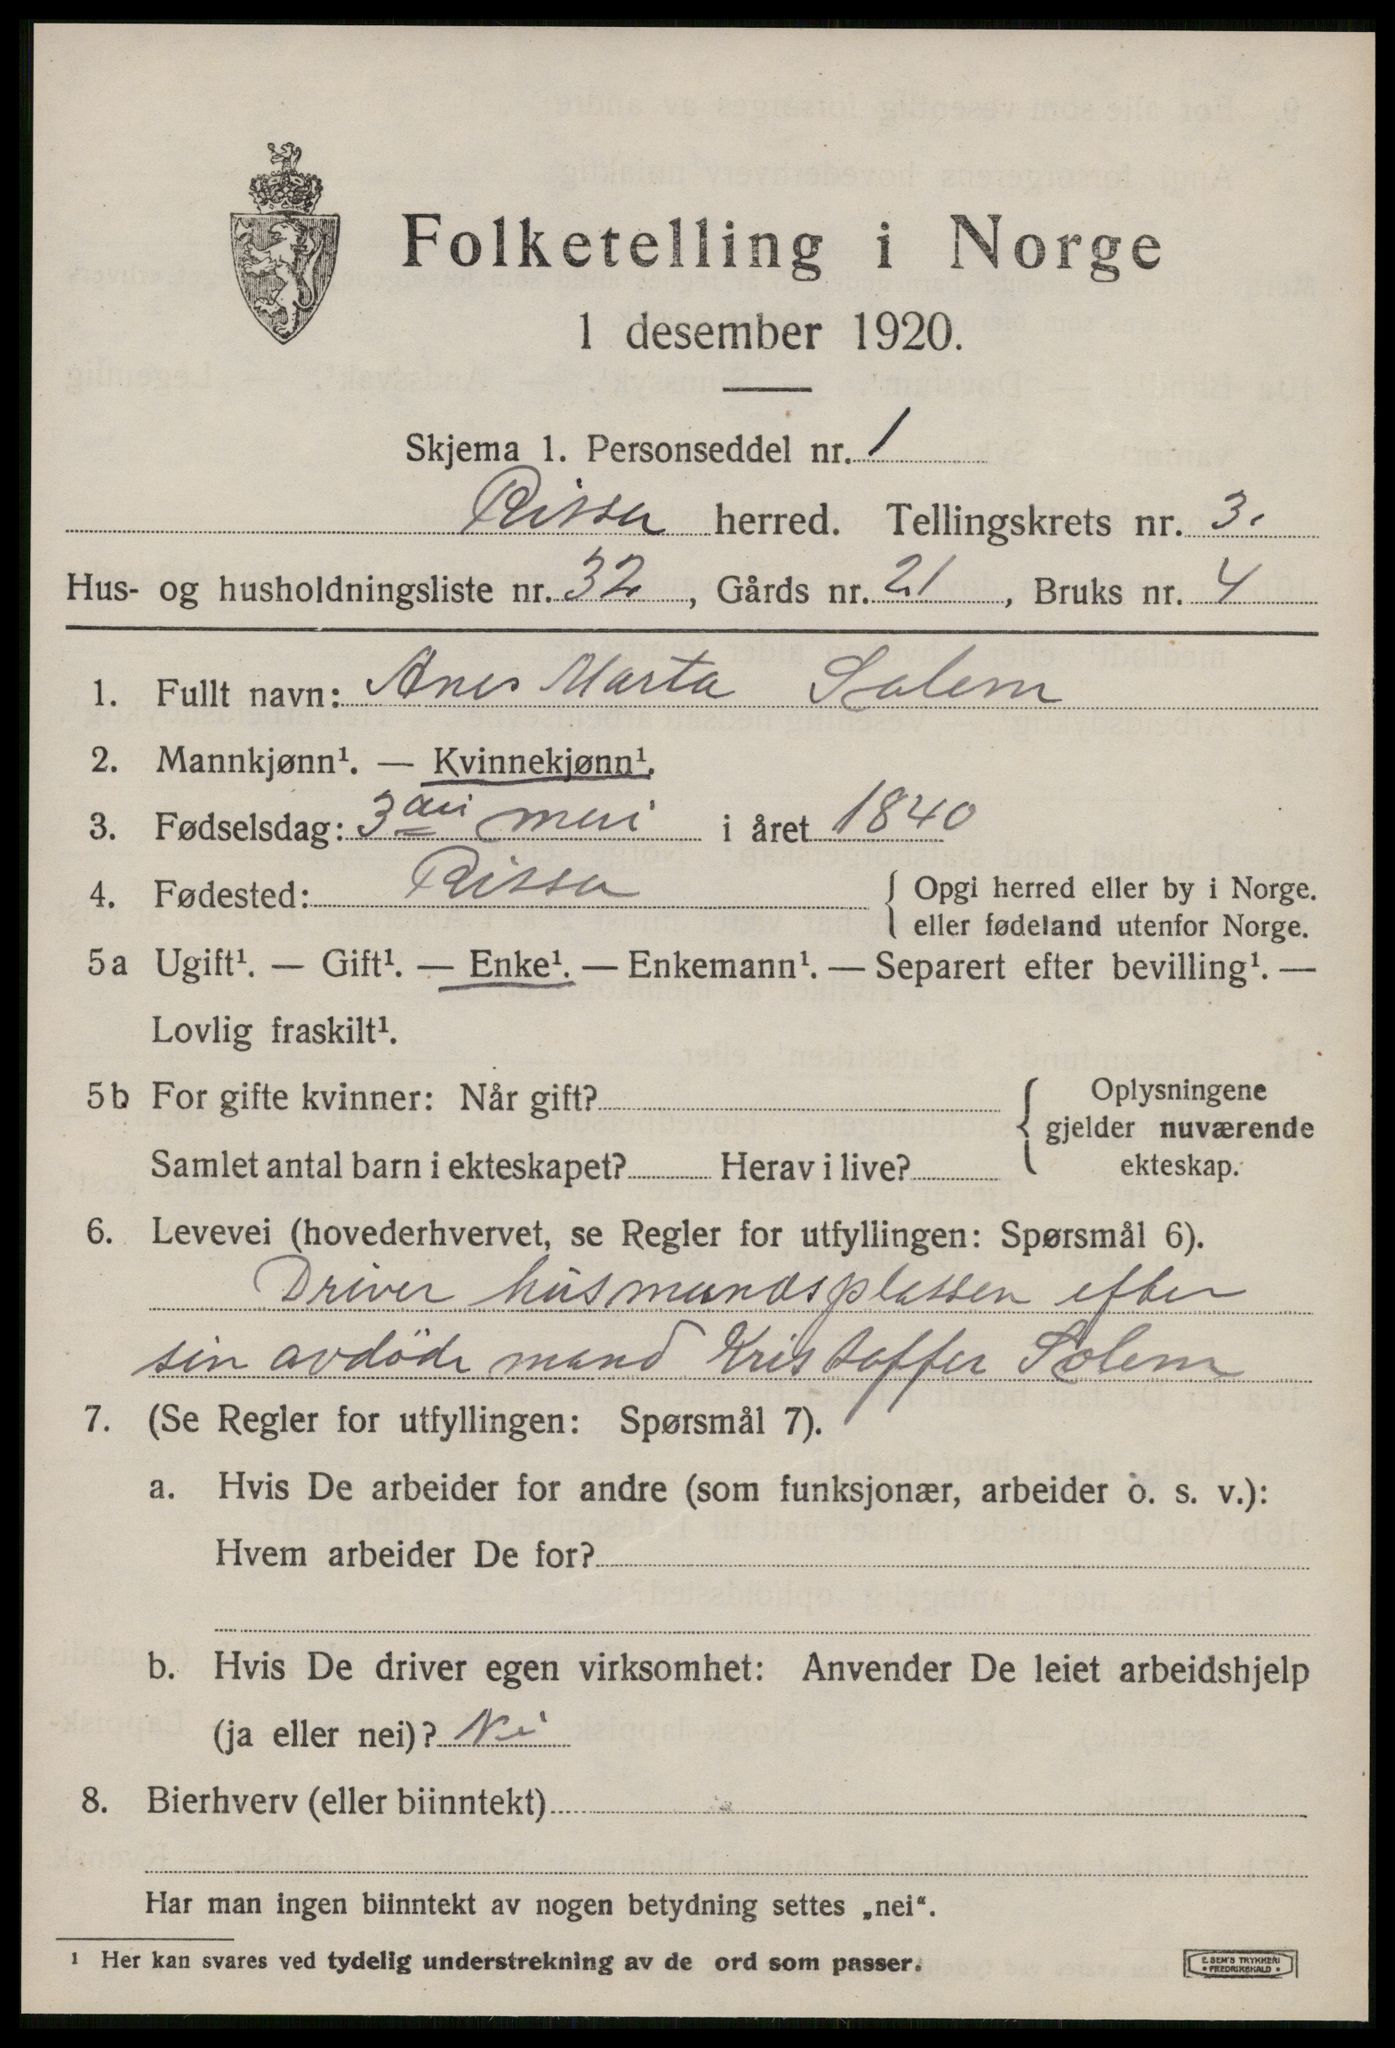 Folketelling i Norge
1 desember 1920.
Skjema 1. Personseddel nr. 1
Rissa herred. Tellingskrets nr. 3.
Hus- og husholdningsliste nr. 32, Gårds nr. 21, Bruks nr. 4
1. Fullt navn: Anes Marta Solem
2. Mannkjønn¹. — Kvinnekjønn¹.
3. Fødselsdag: 3 mai i året 1840
4. Fødested: Rissa { Opgi herred eller by i Norge.
eller fødeland utenfor Norge.
5a Ugift¹. — Gift¹. — Enke¹. — Enkemann¹. — Separert efter bevilling¹. —
Lovlig fraskilt¹.
5b For gifte kvinner: Når gift? { Oplysningene
gjelder nuværende
Samlet antal barn i ekteskapet? Herav i live? ekteskap.
6. Levevei (hovederhvervet, se Regler for utfyllingen: Spørsmål 6).
Driver husmandsplassen efter
sin avdöde mand Kristoffer Solem
7. (Se Regler for utfyllingen: Spørsmål 7).
a. Hvis De arbeider for andre (som funksjonær, arbeider o. s. v.):
Hvem arbeider De for?
b. Hvis De driver egen virksomhet: Anvender De leiet arbeidshjelp
(ja eller nei)? Nei
8. Bierhverv (eller biinntekt)
Har man ingen biinntekt av nogen betydning settes „nei".
¹ Her kan svares ved tydelig understrekning av de ord som passer.
E. SEM'S TRYKKERI
FREDRIKSHALD